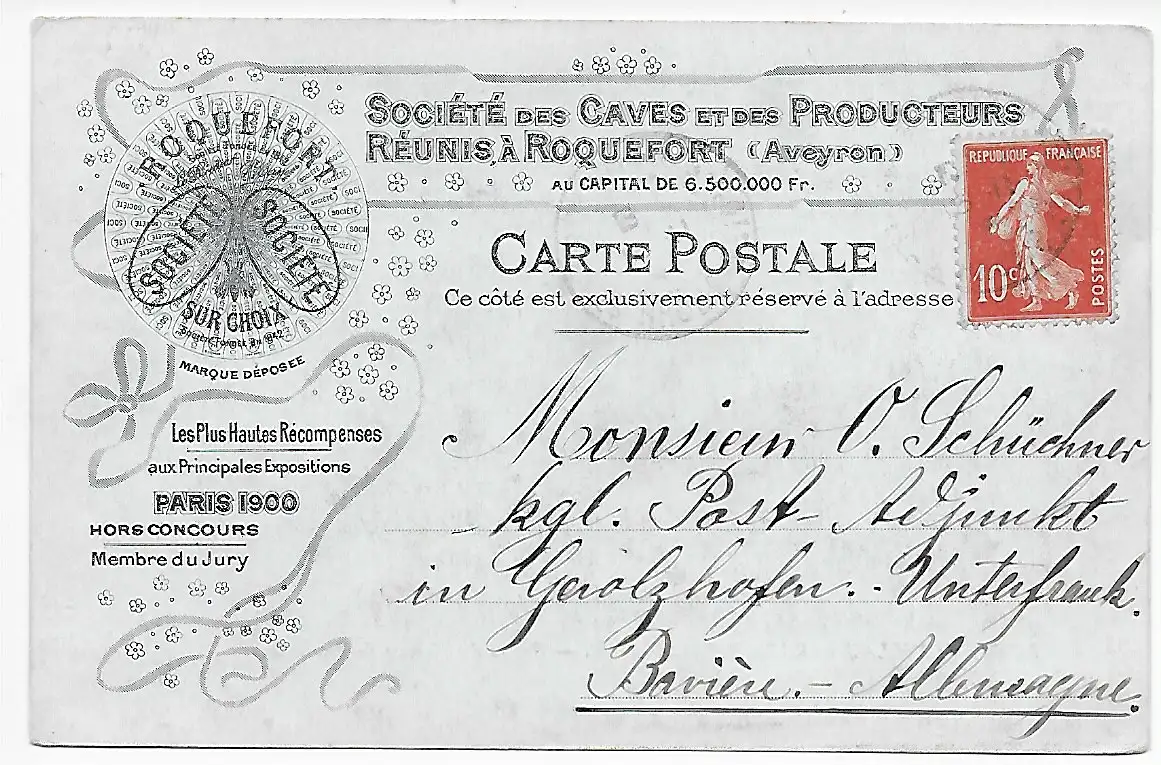 SOCIÉTÉ DES CAVES ET DES PRODUCTEURS
RÉUNIS, À ROQUEFORT (Aveyron)
AU CAPITAL DE 6.500.000 Fr.
ROQUEFORT
SOCIÉTÉ SOCIÉTÉ
SUR CHOIX
MARQUE DÉPOSÉE
CARTE POSTALE
Ce côté est exclusivement réservé à l'adresse
REPUBLIQUE FRANÇAISE
10c
POSTES
Les Plus Hautes Récompenses
aux Principales Expositions
PARIS 1900
HORS CONCOURS
Membre du Jury
Monsieur O. Schüchner
kgl. Post-Adjunkt
in Gerolzhofen.- Unterfrank.
Bavière.- Allemagne.